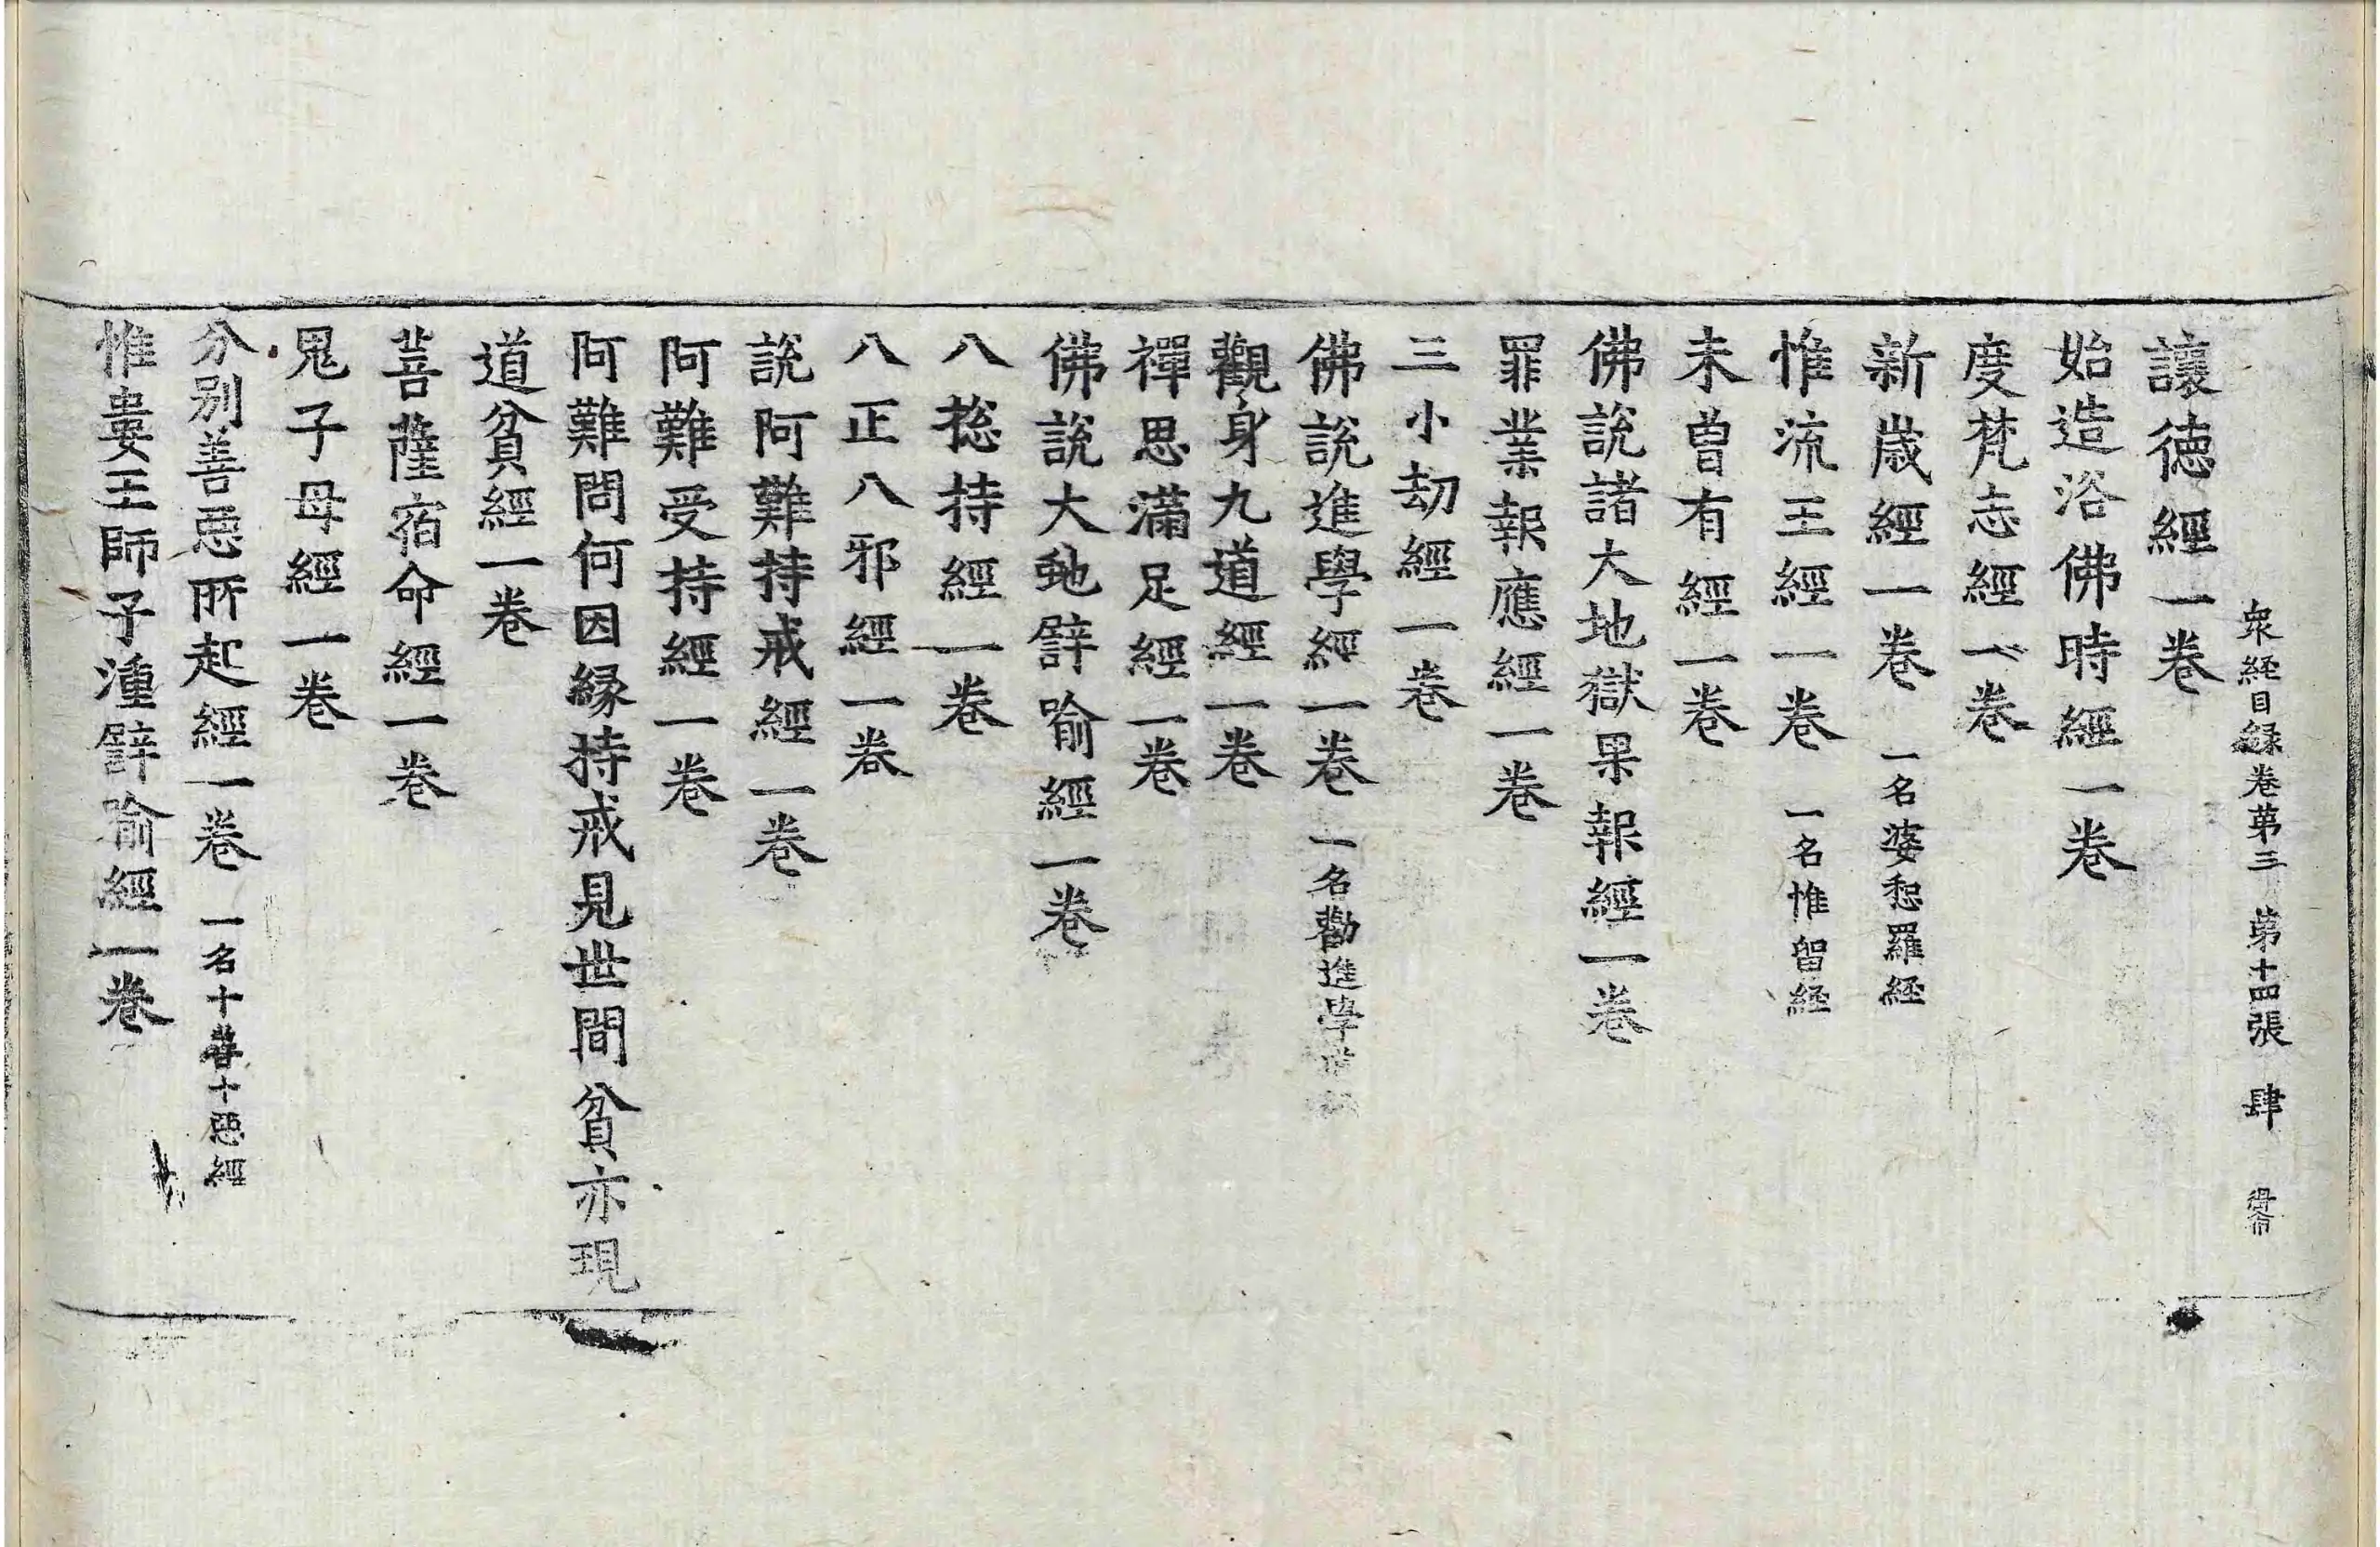 衆経目録卷苐三　苐十四張　肆
讓德經一卷
始造浴佛時經一卷
度梵志經一卷
新歲經一卷　一名婆惒羅経
惟流王經一卷　一名惟留経
未曾有經一卷
佛說諸大地獄果報經一卷
罪業報應經一卷
三小劫經一卷
佛說進學經一卷　一名勸進學
觀身九道經一卷
禪思滿足經一卷
佛說大虵譬喻經一卷
八揔持經一卷
八正八邪經一卷
說阿難持戒經一卷
阿難受持經一卷
阿難問何因緣持戒見世間貧亦現
道貧經一卷
菩薩宿命經一卷
鬼子母經一卷
分別善惡所起經一卷　一名十善十惡經
惟婁王師子湩譬喻經一卷